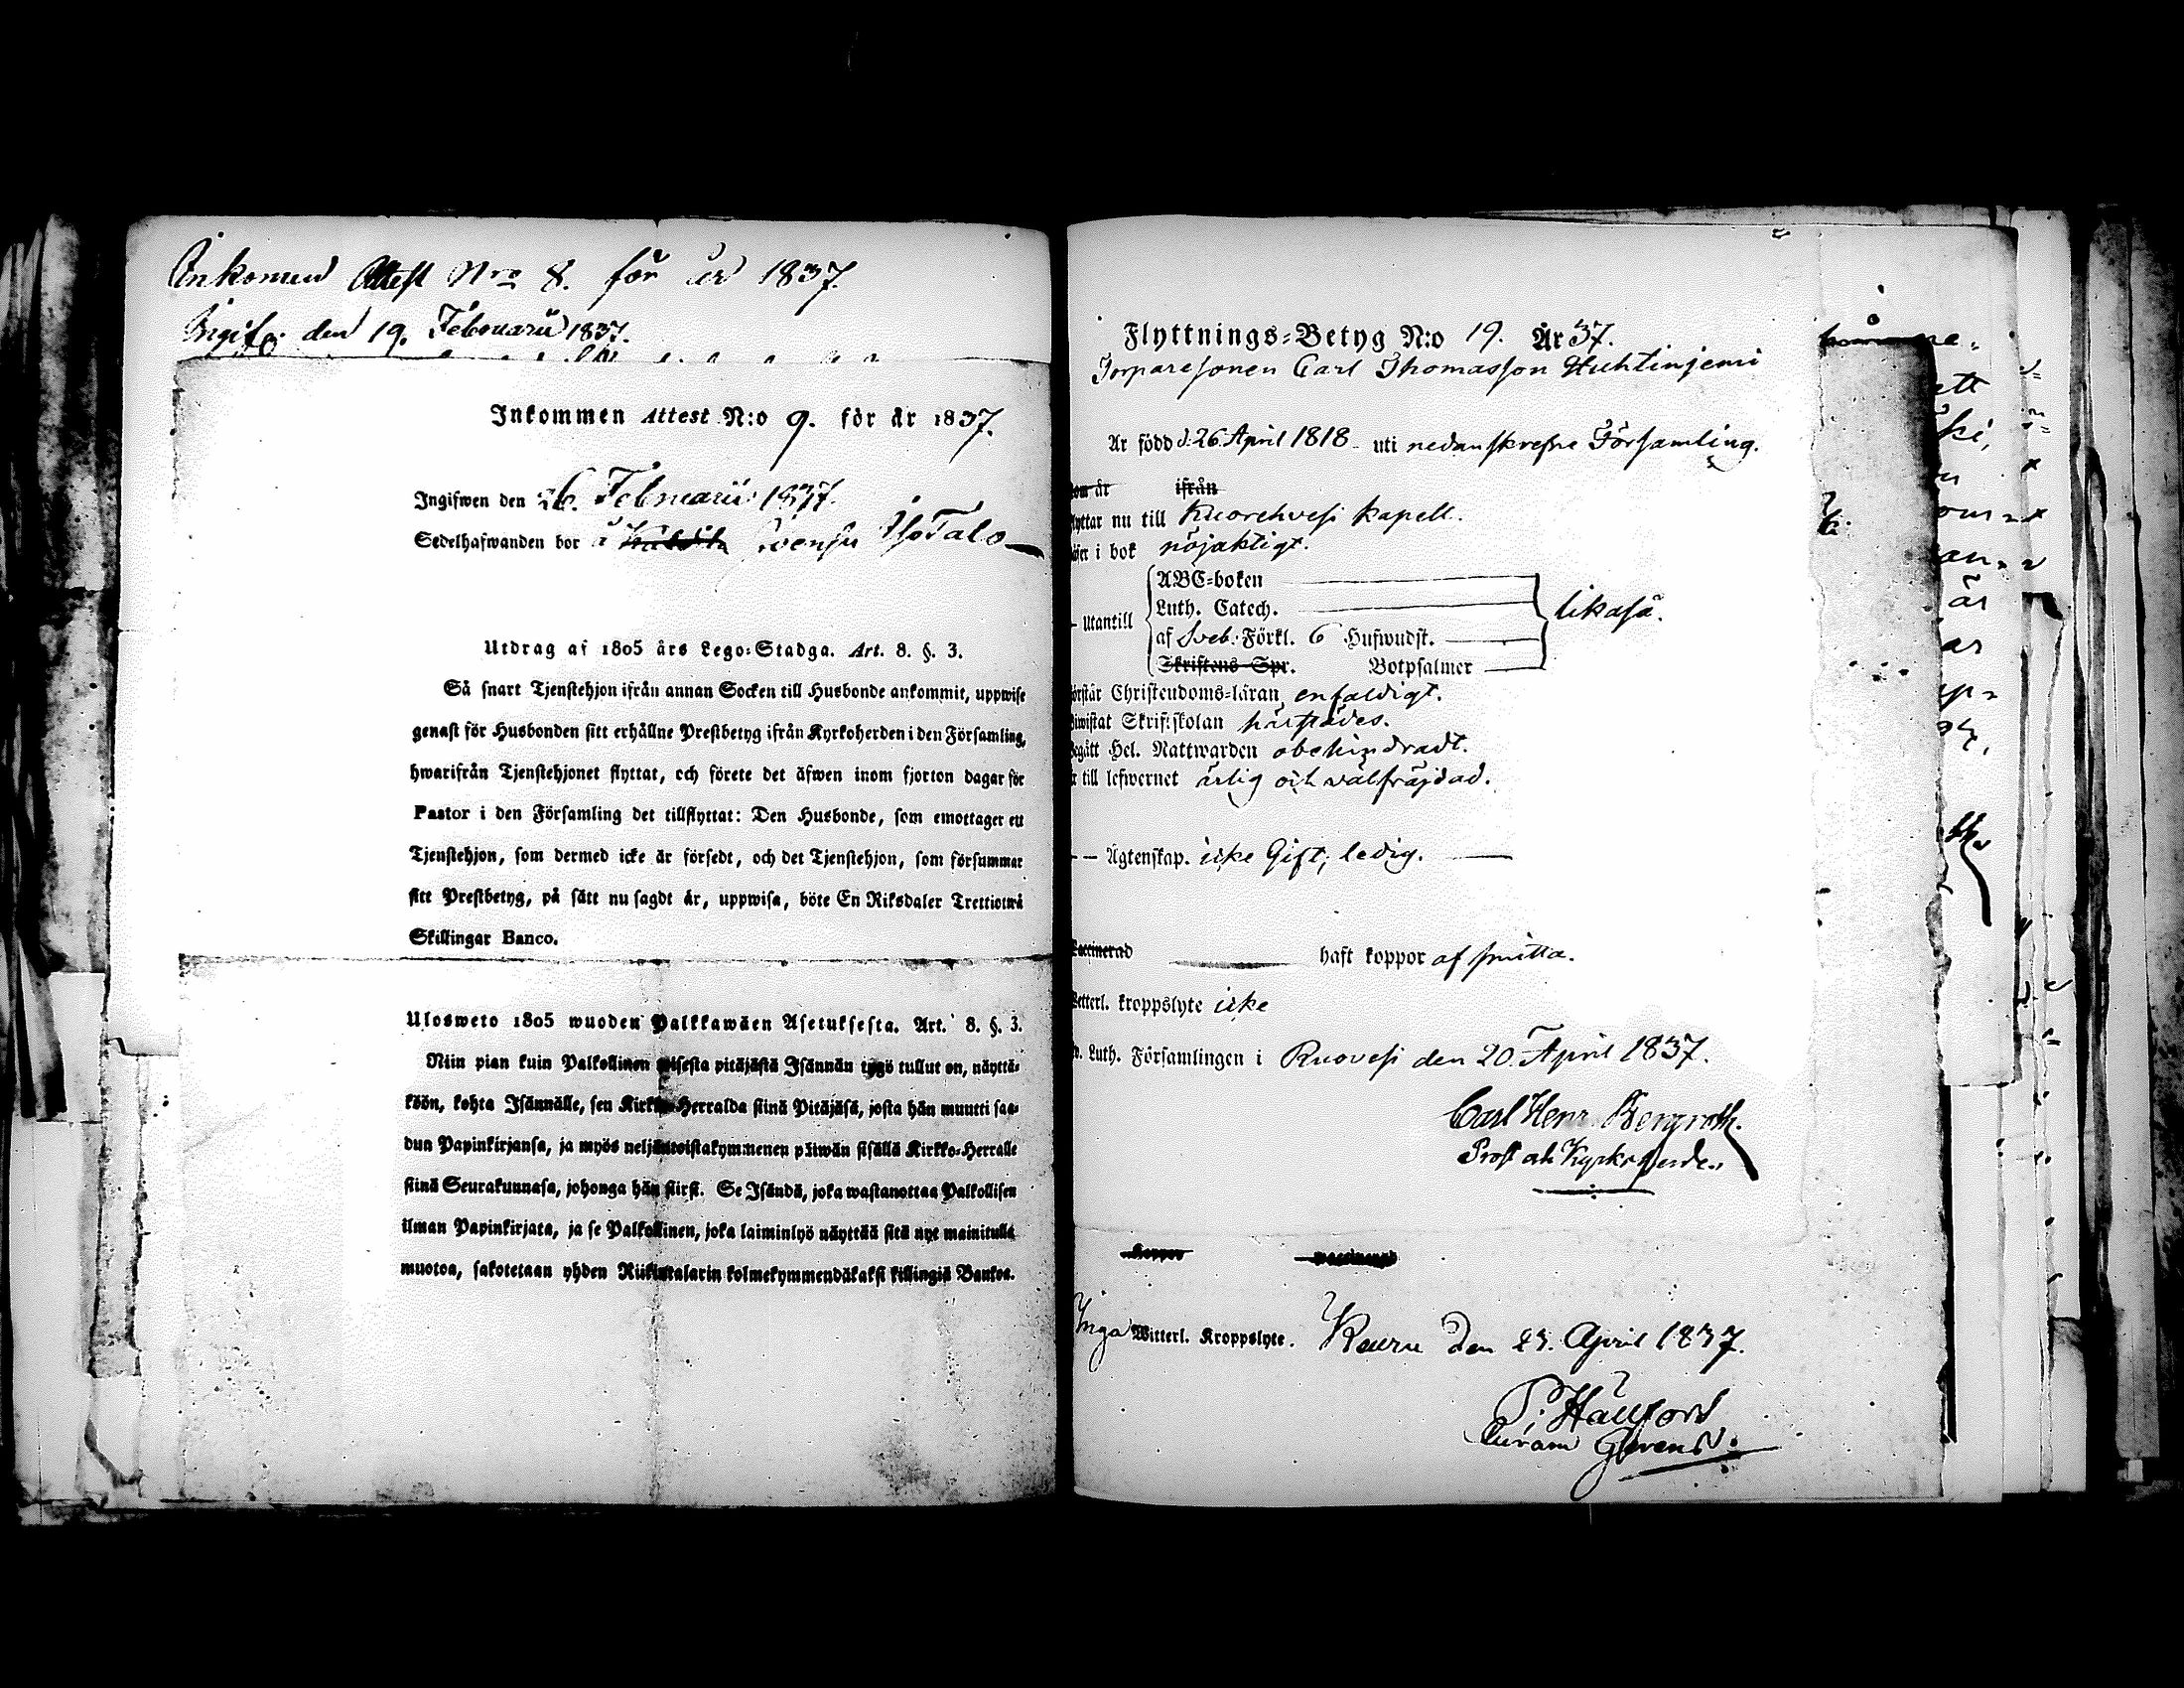 Inkommen Attest Nro 8. för år 1837.
Ingifv. den 19. Februarii 1837.
Inkommen Attest N:o 9. för år 1837.
Ingifwen den 26. Februarii 1837.
Sedelhafwanden bor å IsoTalo
Utdrag af 1805 års Lego-Stadga. Art. 8. §. 3.
Så snart Tjenstehjon ifrån annan Socken till Husbonde ankommit, uppwise
genast för Husbonden sitt erhållne Prestbetyg ifrån Kyrkoherden i den Församling,
hwarifrån Tjenstehjonet flyttat, och förete det äfwen inom fjorton dagar för
Pastor i den Församling det tillflyttat: Den Husbonde, som emottager ett
Tjenstehjon, som dermed icke är försedt, och det Tjenstehjon, som försummar
sitt Prestbetyg, på sätt nu sagdt är, uppwisa, böte En Riksdaler Trettiotwå
Skillingar Banco.
Ulosweto 1805 wuoden Palkkawäen Asetuksesta. Art. 8. §. 3.
Niin pian kuin Palkollinen toisesta pitäjästä Isännän tygö tullut on, näyttä-
köön, kohta Isännälle, sen Kirkko-Herralda siinä Pitäjäsä, josta hän muutti saa-
dun Papinkirjansa, ja myös neljäntoistakymmenen päiwän sisällä Kirkko-Herralle
siinä Seurakunnasa, johonga hän siirsi. Se Isändä, joka wastanottaa Palkollisen
ilman Papinkirjata, ja se Palkollinen, joka laiminlyö näyttää sitä nyt mainitulla
muotoa, sakotetaan yhden Riikintalarin kolmekymmendäkaksi killingiä Bankoa.
Flyttnings-Betyg N:o 19. År 37.
Torparesonen Carl Thomasson Huhtinjemi
Är född d. 26 April 1818 uti nedanskrefne Församling.
kom år ifrån
flyttar nu till Kuorehvesi kapell.
läser i bok nöjaktigt.
Utantill
ABC-boken
Luth. Catech.
af Sveb. Förkl. 6 Hufwudst.
Skriftens Spr. Botpsalmer
likaså.
förstår Christendoms-läran enfaldigt.
biwistat Skriftskolan härstädes.
begått Hel. Nattwarden obehindradt.
är till lefwernet ärlig och välfräjdad.
Ägtenskap. icke Gift, ledig.
Vaccinerad haft koppor af smitta.
Wetterl. kroppslyte icke
Ev. Luth. Församlingen i Ruovesi den 20. April 1837.
Carl Henr. Bergroth.
Prost och Kyrkoherde.
Koppor vaccinerad
Inga Witterl. Kroppslyte. Keuru den 23. April 1837.
P. Hällfors
Curam Gerens.